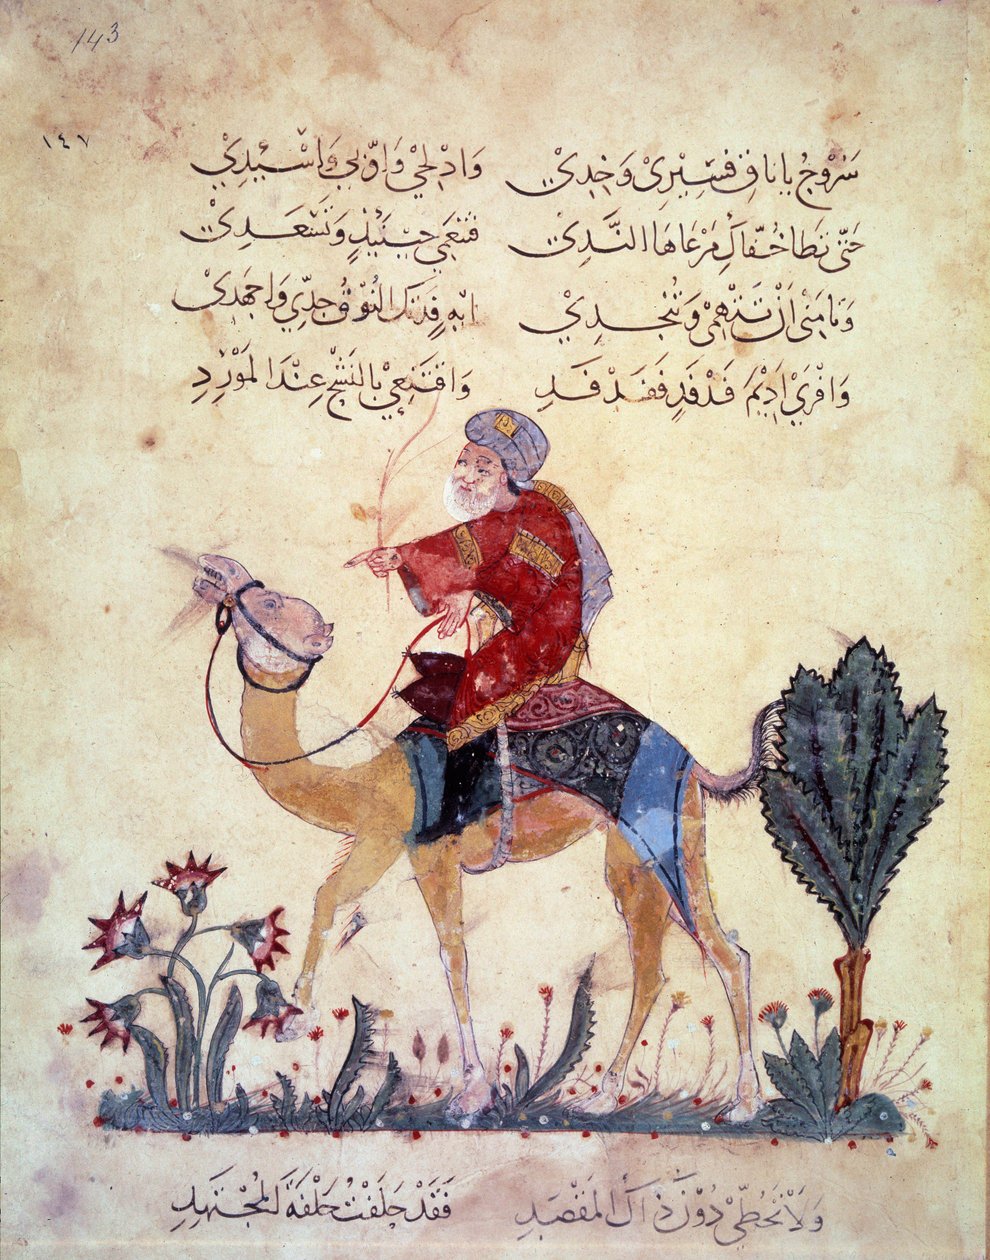 143
١٤٧
سَرُوجُ يا ناقَ فَسِيْرِيْ وَخِدِيْ وَادْلِجِيْ وَاوِّبِيْ وَاسْئِدِيْ
حَتَّى تَطَا خُفَّاكِ مَرْعَاهَا النَّدِيْ فَتَنْعَمِي حِيْنَئِذٍ وَتَسْعَدِيْ
وَتَامَنِيْ اَنْ تُتْهِمِيْ وَتُنْجِدِيْ اِيْهِ فَدَتْكِ النُّوْقُ جِدِّي وَاجْهَدِيْ
وَافْرِيْ اَدِيْمَ فَدْفَدٍ فَفَدْفَدِ وَاقْتَنِعِيْ بِالنَّشْحِ عِنْدَ المَوْرِدِ
وَلَا تَحُطِّيْ دُوْنَ ذَاكَ المَقْصَدِ فَقَدْ حَلَفْتُ حَلْفَةَ المُجْتَهِدِ